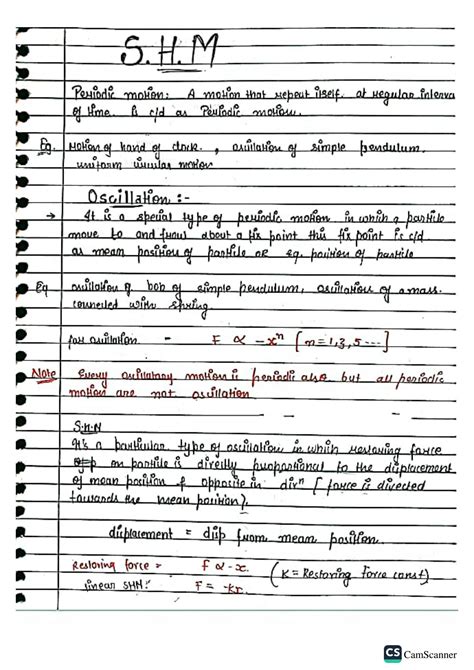 S.H.M
Periodic motion: A motion that repeat itself at regular interva
of time. is c/d as Periodic motion.
Eg. Motion of hand of clock. , oscillation of simple pendulum.
uniform circular motion
Oscillation :-
→ It is a special type of periodic motion in which a particle
move to and fro about a fix point this fix point is c/d
as mean position of particle OR eq. position of particle
Eg oscillation of bob of simple pendulum, oscillation of a mass.
connected with spring.
for oscillation - F ∝ -xⁿ [n = 1,3,5 ---]
Note Every oscillatory motion is periodic also but all periodic
motion are not oscillation.
S.H.M
It's a particular type of oscillation in which restoring force
on particle is directly proportional to the displacement
of mean position & opposite in dirⁿ [force is directed
towards the mean position).
displacement = disp from mean position.
Restoring force = F ∝ -x. (K = Restoring Force const)
linear SHM: F = -kx.
CS CamScanner